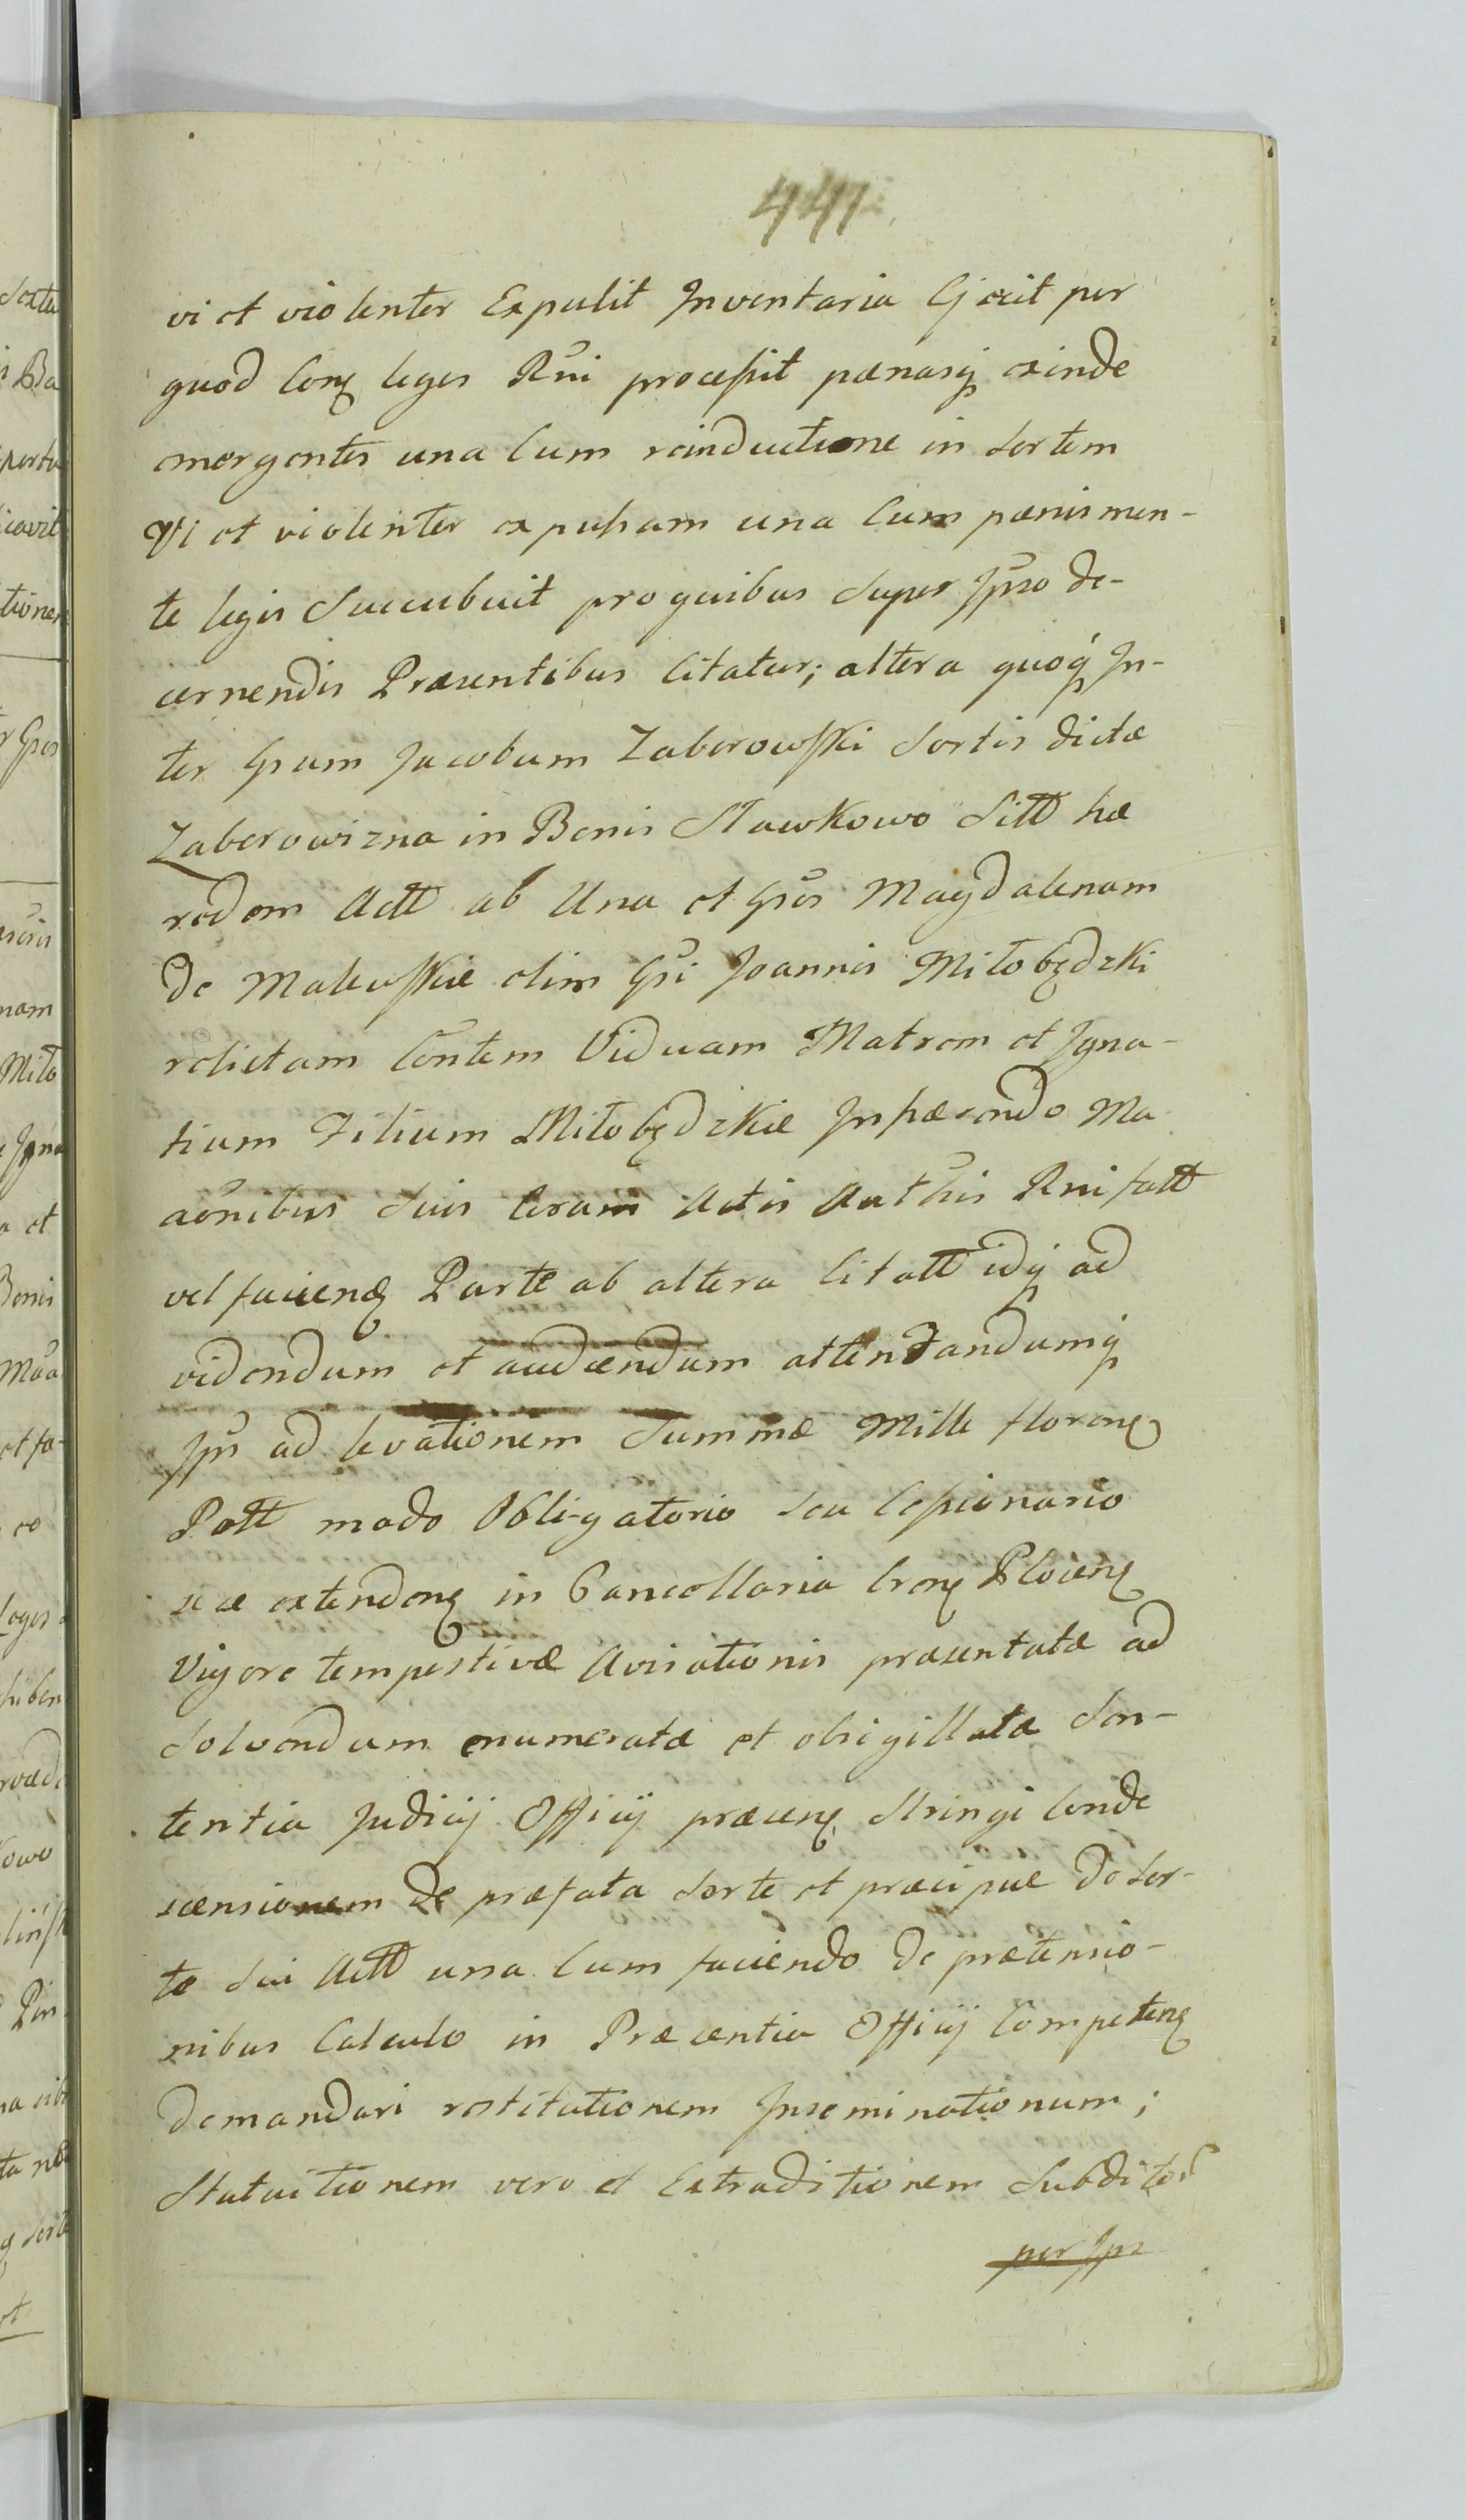 441
vi et violenter Expulit Inventaria Ejecit per
quod Conę leges Rñi processit pænasq̨ exinde
emergentes una Cum reinductione in Sortem
Vi et violenter expulsam una Cum pænis men-
te legis Succubuit pro quibus Super Ipso de-
cernendis Præsentibus Citatur; altera quoq̨ In-
ter Gsum Jacobum Zaborowski Sortis dictæ
Zaborowizna in Bonis Sławkowo Sitt hæ
redem Actt ab Una et Gsos Magdalenam
de Malewskie olim Gsi Joannis Miłobędzki
relictam Contem Viduam Matrem et Igna-
tium Filium Miłobędzkie Inhærendo Ma
aonibus Suis Coram Actis Authis Rni fatt
vel faciendę Parte ab altera Citatt idq̨ ad
videndum et audiendum attentandumq̨
Ipsis ad levationem Summæ Mille florenę
Pott modo Obligatorio Seu Cessionario
se se extendenę in Cancellaria Crenę Plocenę
Vigore tempestivæ Avisationis præsentatæ ad
Solvendum enumeratæ et obsigillatæ Sen-
tentia Judicij Officij præsenę Stringi Conde
scensionem de præfata Sorte et præcipue de Sor-
te Sui Actt una Cum faciendo de prætensio-
nibus Calculo in Præsentia Officij Competenę
demandari restitutionem Inseminationum;
Statuitionem vero et Extraditionem Subditor̃
per Ips